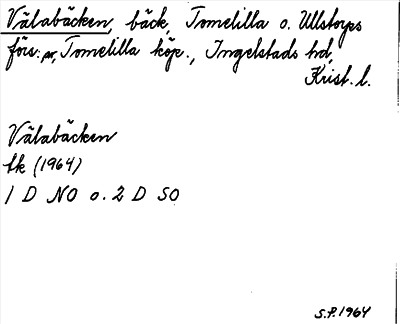 Välabäcken, bäck, Tomelilla o. Ullstorps
förs:ar, Tomelilla köp., Ingelstads hd,
Krist. l.
Välabäcken
Ek (1964)
1 D NO o. 2 D SO
S.F. 1964